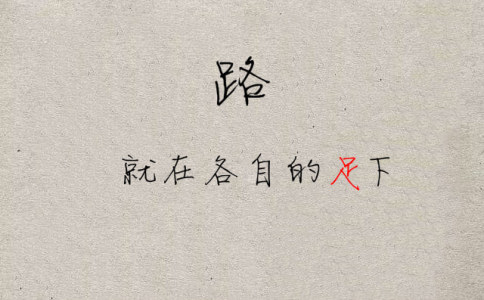 路
就在各自的足下